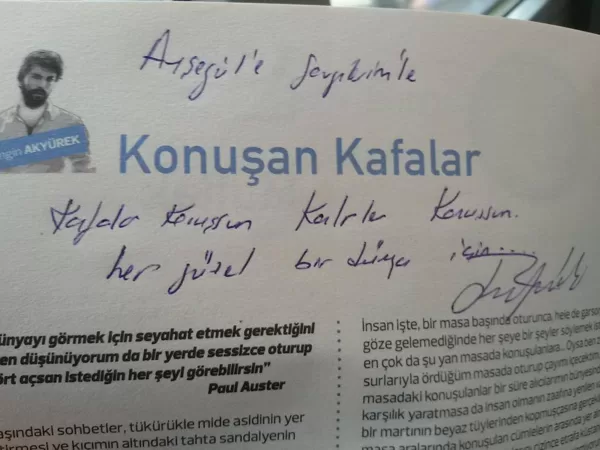 Ayşegül'e Sevgilerimle
ngin AKYÜREK
Konuşan Kafalar
Kafalar Konuşsun Kalpler Konuşsun.
her güzel bir dünya için......
ünyayı görmek için seyahat etmek gerektiğini
en düşünüyorum da bir yerde sessizce oturup
ört açsan istediğin her şeyi görebilirsin"
Paul Auster
aşındaki sohbetler, tükürükle mide asidinin yer
tirmesi ve kıçımın altındaki tahta sandalyenin
İnsan işte, bir masa başında oturunca, hele de garson
göze gelemediğinde her şeye bir şeyler söylemek is
en çok da şu yan masada konuşanlara... Oysa ben z
surlarıyla ördüğüm masada oturup çayımı içecektim,
masadaki konuşanlar bir süre alıcılarımın bünyesinde
karşılık yaratmasa da insan olmanın zaafına yenilen va
bir martının beyaz tüylerinden kopmuşçasına gerçekli
masa aralarında konuşulan cümlelerin arasında yer ar